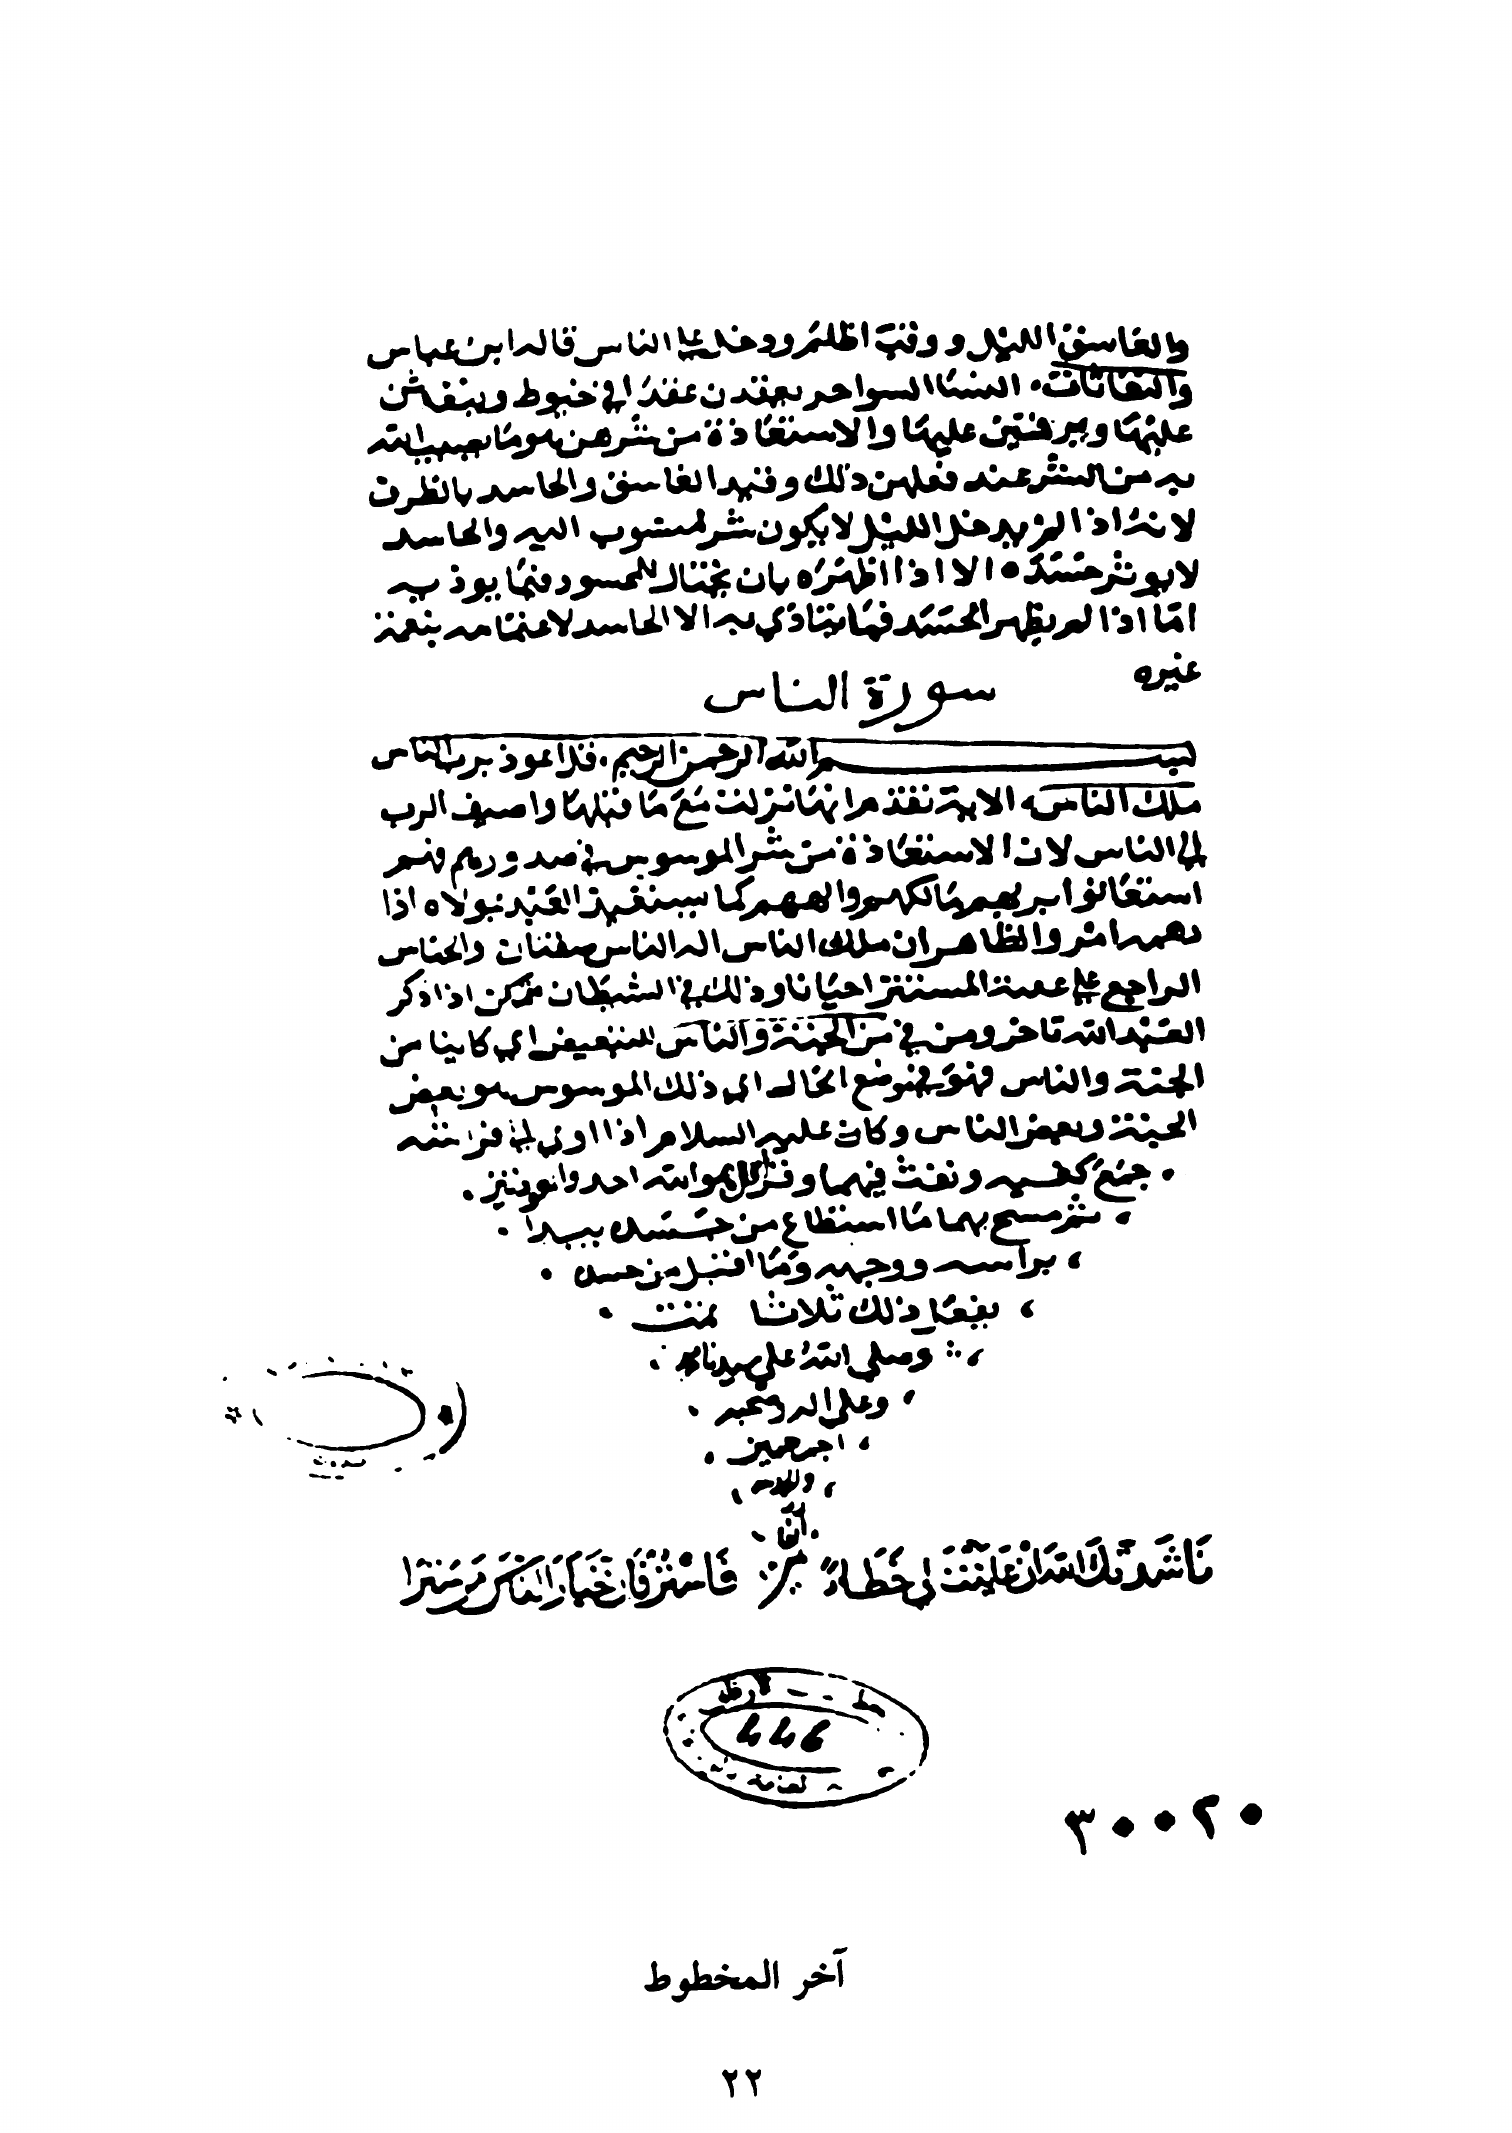 والغاسق الليل ووقب اظلم ودخل على الناس قاله ابن عباس
والنفاثات النسا السواحر يعقدن عقدا في خيوط وينفثن
عليها ويرقين عليها والاستعاذة من شرهن هو ما يصيب الله
به من الشر عند فعلهن ذلك وقيد الغاسق والحاسد بالظرف
لانه اذا لم يدخل الليل لا يكون شر منسوب اليه والحاسد
لا يوثر حسده الا اذا اظهره بان يحتال للمحسود فيما يوذيه
امّا اذا لم يظهر الحسد فما يتاذي به الا الحاسد لاغتمامه بنعمة
غيره
سورة الناس
بسم الله الرحمن الرحيم قل اعوذ برب الناس
ملك الناس الاية تقدم انها نزلت مع ما قبلها واضيف الرب
الى الناس لان الاستعاذة من شر الموسوس في صدورهم فهم
استعاذوا بربهم مالكهم والههم كما يستغيث العبد بمولاه اذا
دهمه امر والظاهر ان ملك الناس اله الناس صفتان والخناس
الراجع على عقبه المستتر احيانا وذلك في الشيطان متمكن اذا ذكر
العبد الله تاخر ومن في من الجنة والناس للتبعيض اي كاينا من
الجنة والناس فهو في موضع الحال اي ذلك الموسوس هو بعض
الجنة وبعض الناس وكان عليه السلام اذا اوى الى فراشه
جمع كفيه ونفث فيهما وقرا قل هو الله احد والمعوذتين
ثم مسح بهما ما استطاع من جسده يبدا
براسه ووجهه وما اقبل من جسده
يفعل ذلك ثلاثا تمت
وصلى الله على سيدنا
وعلى اله وصحبه
اجمعين
ناشدتك الله ان عاينت لي خطا فاستر فان خيار الناس من سترا
٣٠٠٢٠
آخر المخطوط
٢٢